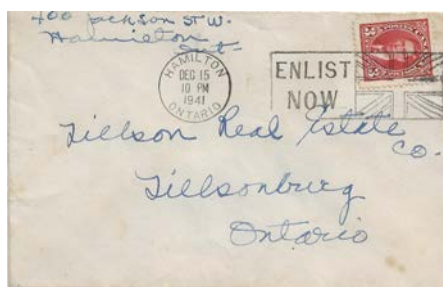 400 Jackson St W.
Hamilton
Ont
HAMILTON
DEC 15
10 PM
1941
ONTARIO
ENLIST
NOW
Tillson Real Estate
Co.
Tillsonburg
Ontario